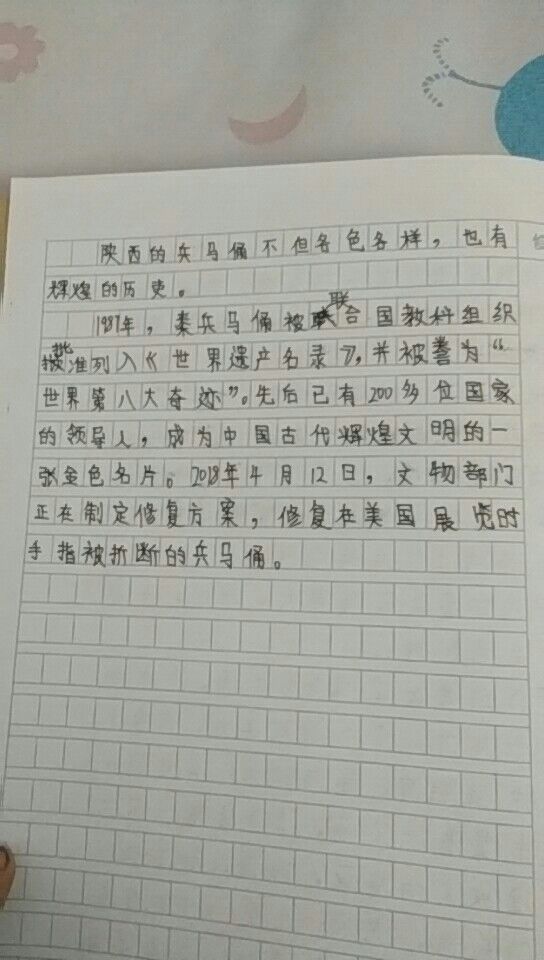 陕西的兵马俑不但各色各样，也有
辉煌的历史。
1987年，秦兵马俑被联合国教科组织
批准列入《世界遗产名录》，并被誉为“
世界第八大奇迹”。先后已有200多位国家
的领导人，成为中国古代辉煌文明的一
张金色名片。2018年4月12日，文物部门
正在制定修复方案，修复在美国展览时
手指被折断的兵马俑。